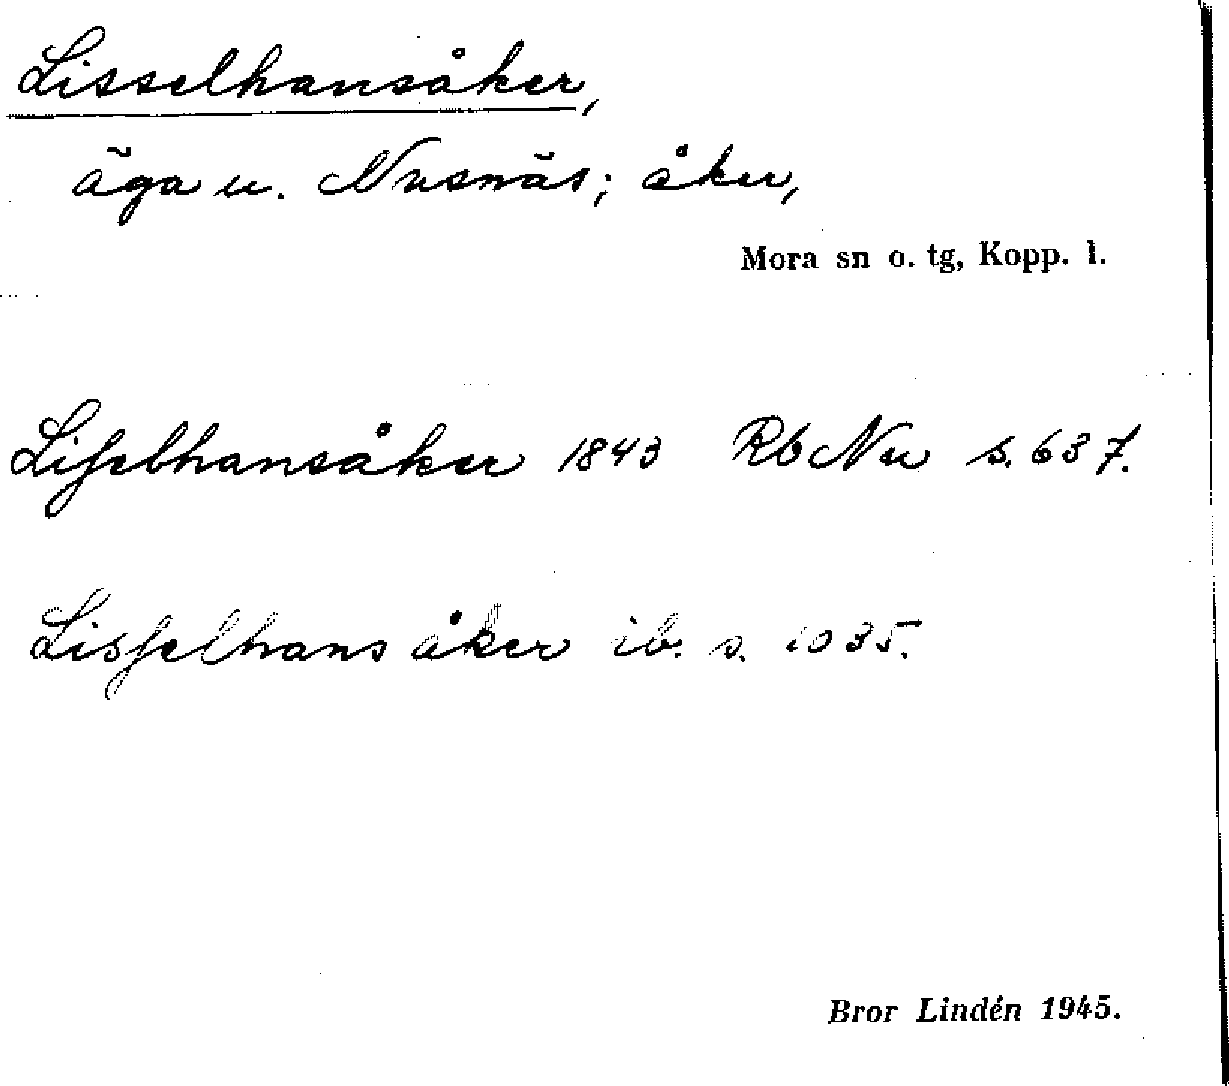 Lisselhansåker,
äga u. Nusnäs; åker,
Mora sn o. tg, Kopp. l.
Liſselhansåker 1843 Rb Nu s. 637.
Lisſelhans åker ib. s. 1035.
Bror Lindén 1945.